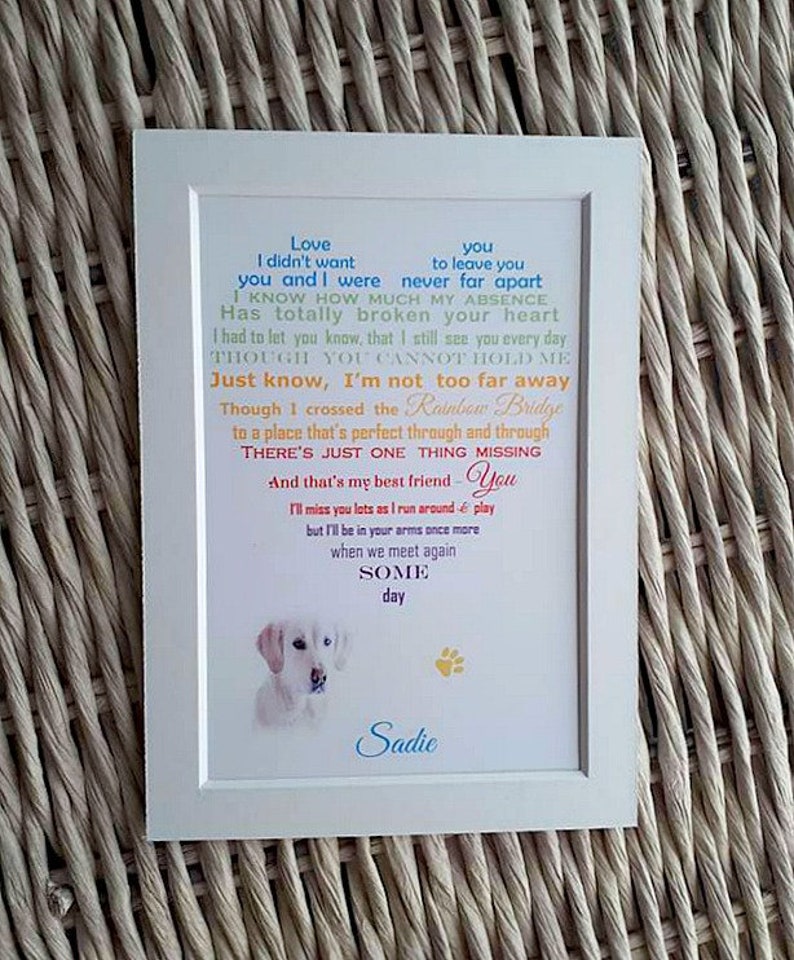 Love you
I didn't want to leave you
you and I were never far apart
I KNOW HOW MUCH MY ABSENCE
Has totally broken your heart
I had to let you know, that I still see you every day
THOUGH YOU CANNOT HOLD ME
Just know, I'm not too far away
Though I crossed the Rainbow Bridge
to a place that's perfect through and through
THERE'S JUST ONE THING MISSING
And that's my best friend - You
I'll miss you lots as I run around & play
but I'll be in your arms once more
when we meet again
SOME
day
Sadie